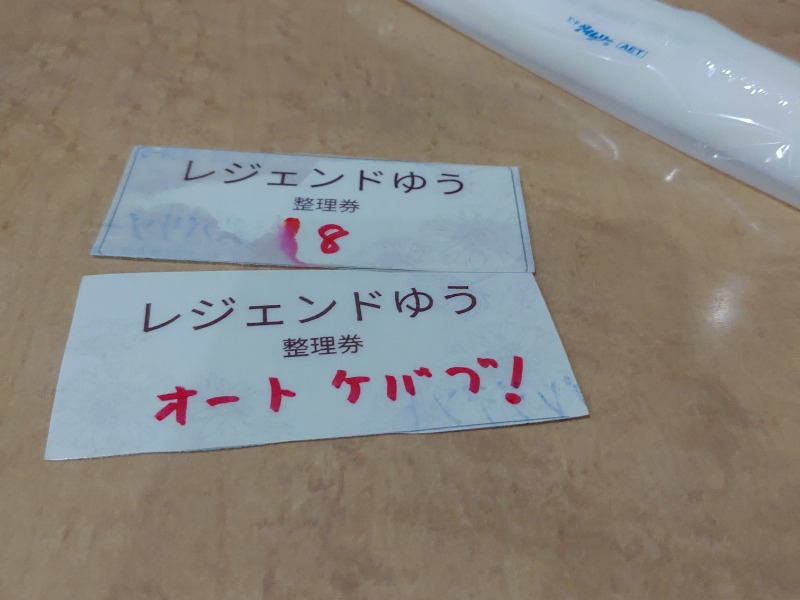 レジェンドゆう
整理券
18
レジェンドゆう
整理券
オート ケバブ!
(AET)